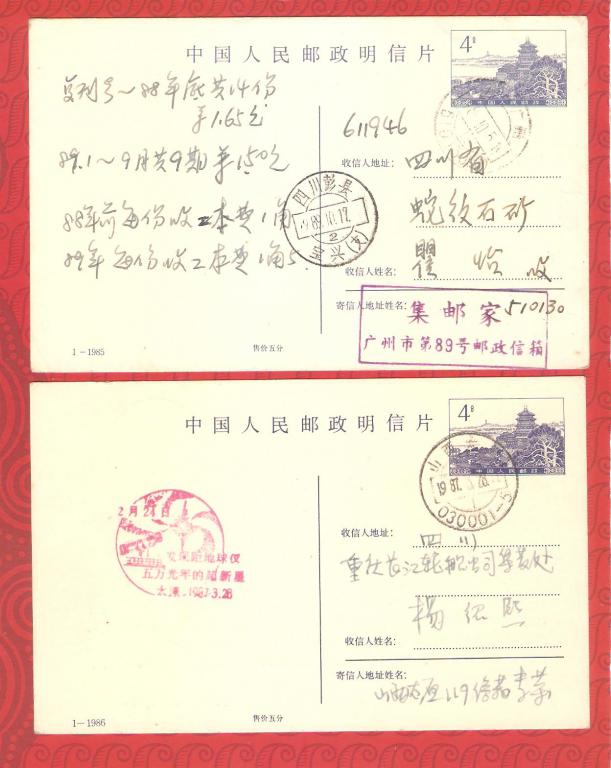 中国人民邮政明信片
4分
中国人民邮政
复刊号~88年底共14份
羊1.65元
89.1~9月共9期羊1.50元
88年前每份收工本费1角
89年每份收工本费1角5.
四川彭县
1989.10.17.
2
(支)
611946
收信人地址:
四川省
蛇纹石矿
收信人姓名:
瞿怡收
寄信人地址姓名:
510130
集邮家
广州市第89号邮政信箱
1-1985
售价五分
中国人民邮政明信片
4分
中国人民邮政
山西
1987.3.28.
030001-5
2月24日
发现距地球仅
五万光年的超新星
太原.1987.3.28
收信人地址:
四川
重庆长江轮船公司
收信人姓名:
杨绍熙
寄信人地址姓名:
山西太原119信箱李荣
1-1986
售价五分